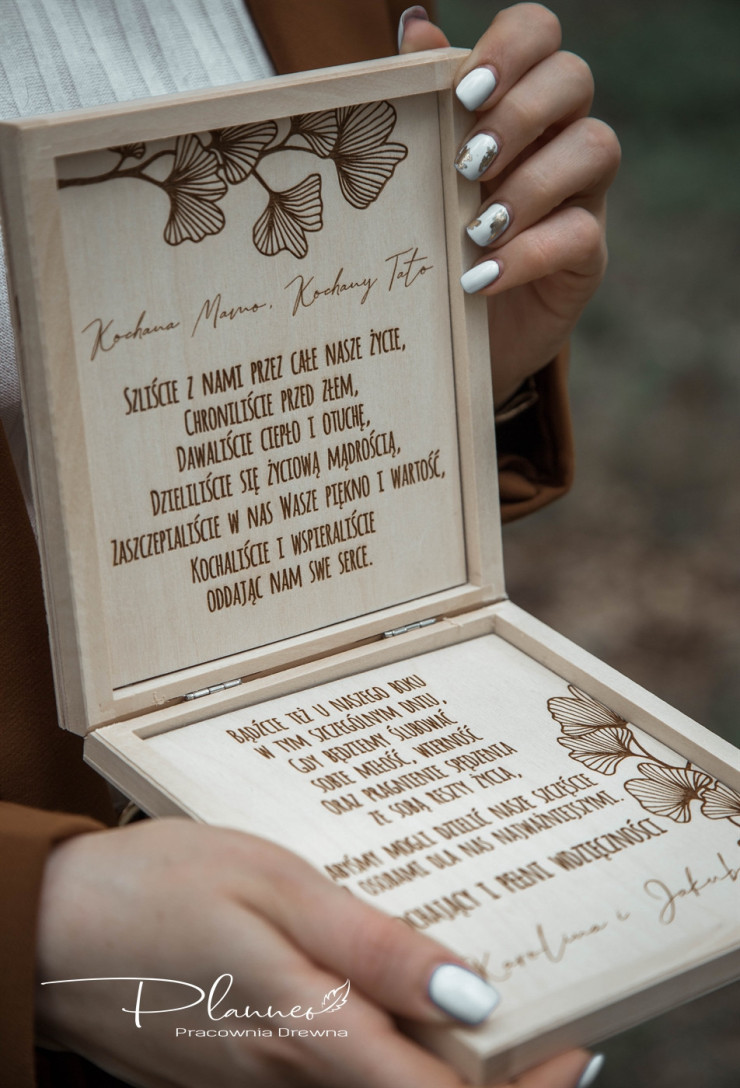 Kochana Mamo, Kochany Tato
Szliście z nami przez całe nasze życie,
Chroniliście przed złem,
Dawaliście ciepło i otuchę,
Dzieliliście się życiową mądrością,
Zaszczepialiście w nas Wasze piękno i wartość,
Kochaliście i wspieraliście
oddając nam swe serce.
Bądźcie też u naszego boku
w tym szczególnym dniu,
gdy będziemy ślubować
sobie miłość, wierność
oraz pragnienie spędzenia
ze sobą reszty życia,
mogli dzielić nasze szczęście
osobami dla nas najważniejszymi.
i pełni wdzięczności
Karolina i Jakub
Planneo
Pracownia Drewna